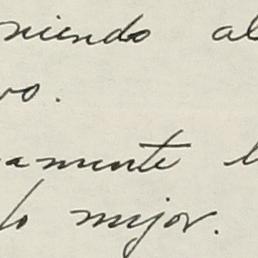 niendo al
vo.
amente l
lo mejor.